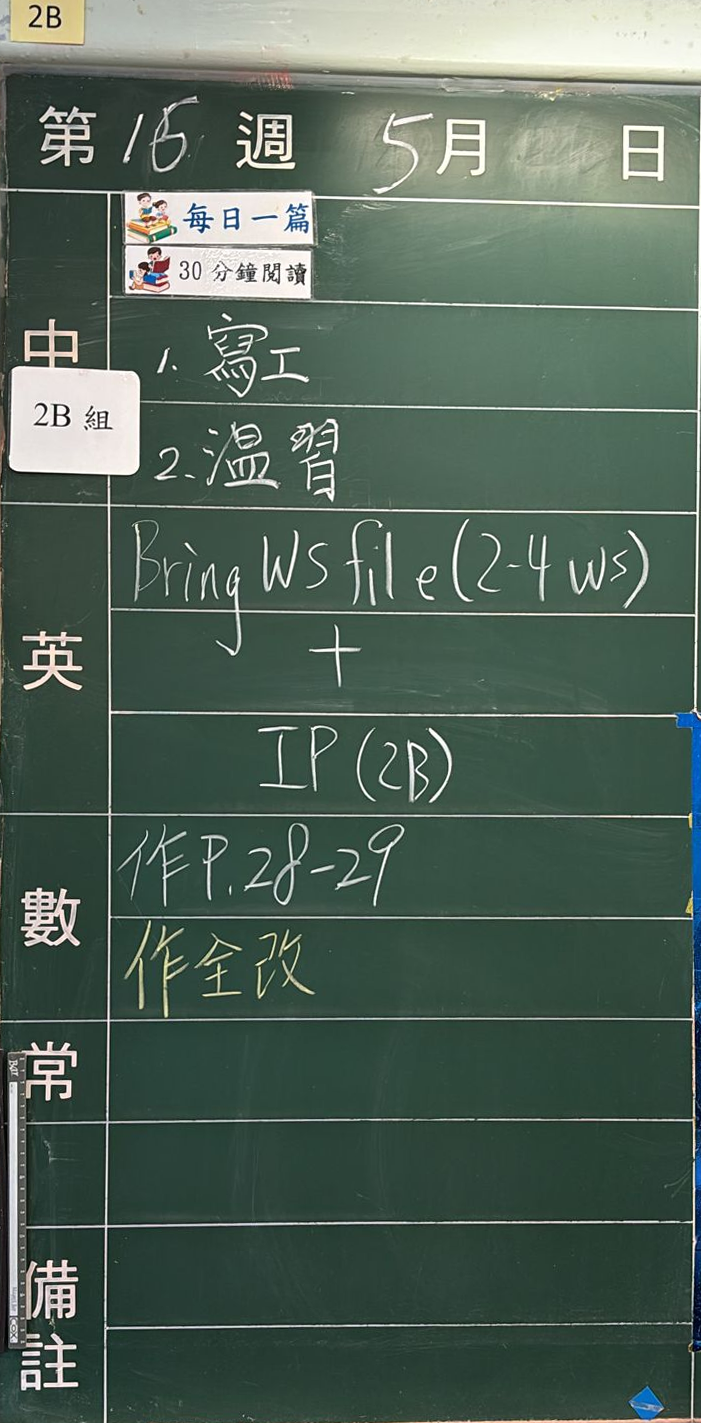 2B
第 15 週 5月 日
每日一篇
30分鐘閱讀
中
2B 組
1. 寫工
2. 温習
英
Bring WS file (2-4 WS)
+
IP (2B)
數
作P.28-29
作全改
常
備註